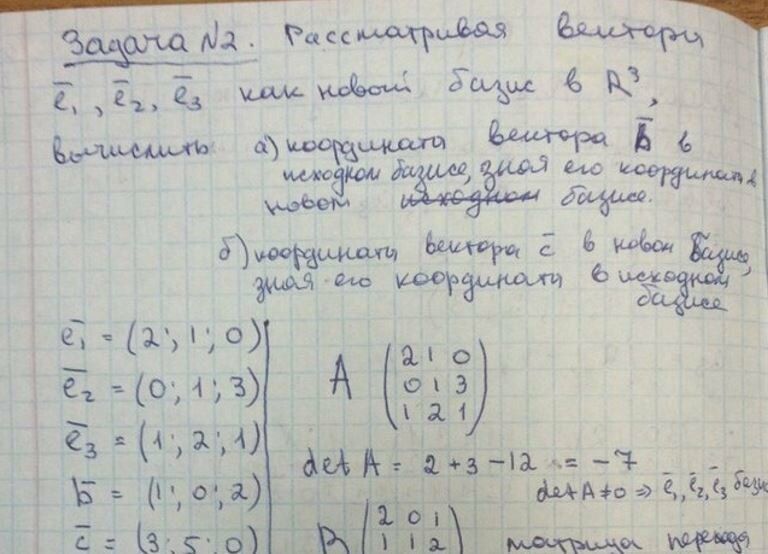 Задача №2. Рассматривая вектори
e̅₁, e̅₂, e̅₃ как новый базис в R³,
вычислить а) координати вектора b̅ в
исходном базисе, зная его координати в
новом исходном базисе.
б) координати вектора c̅ в новом базисе,
зная его координати в исходном
базисе
e̅₁ = (2; 1; 0)
e̅₂ = (0; 1; 3)
e̅₃ = (1; 2; 1)
b̅ = (1; 0; 2)
c̅ = (3; 5; 0)
A
2 1 0
0 1 3
1 2 1
det A = 2 + 3 - 12 = -7
det A ≠ 0 ⇒ e̅₁, e̅₂, e̅₃ базис
B
2 0 1
1 1 2
матрица перехода